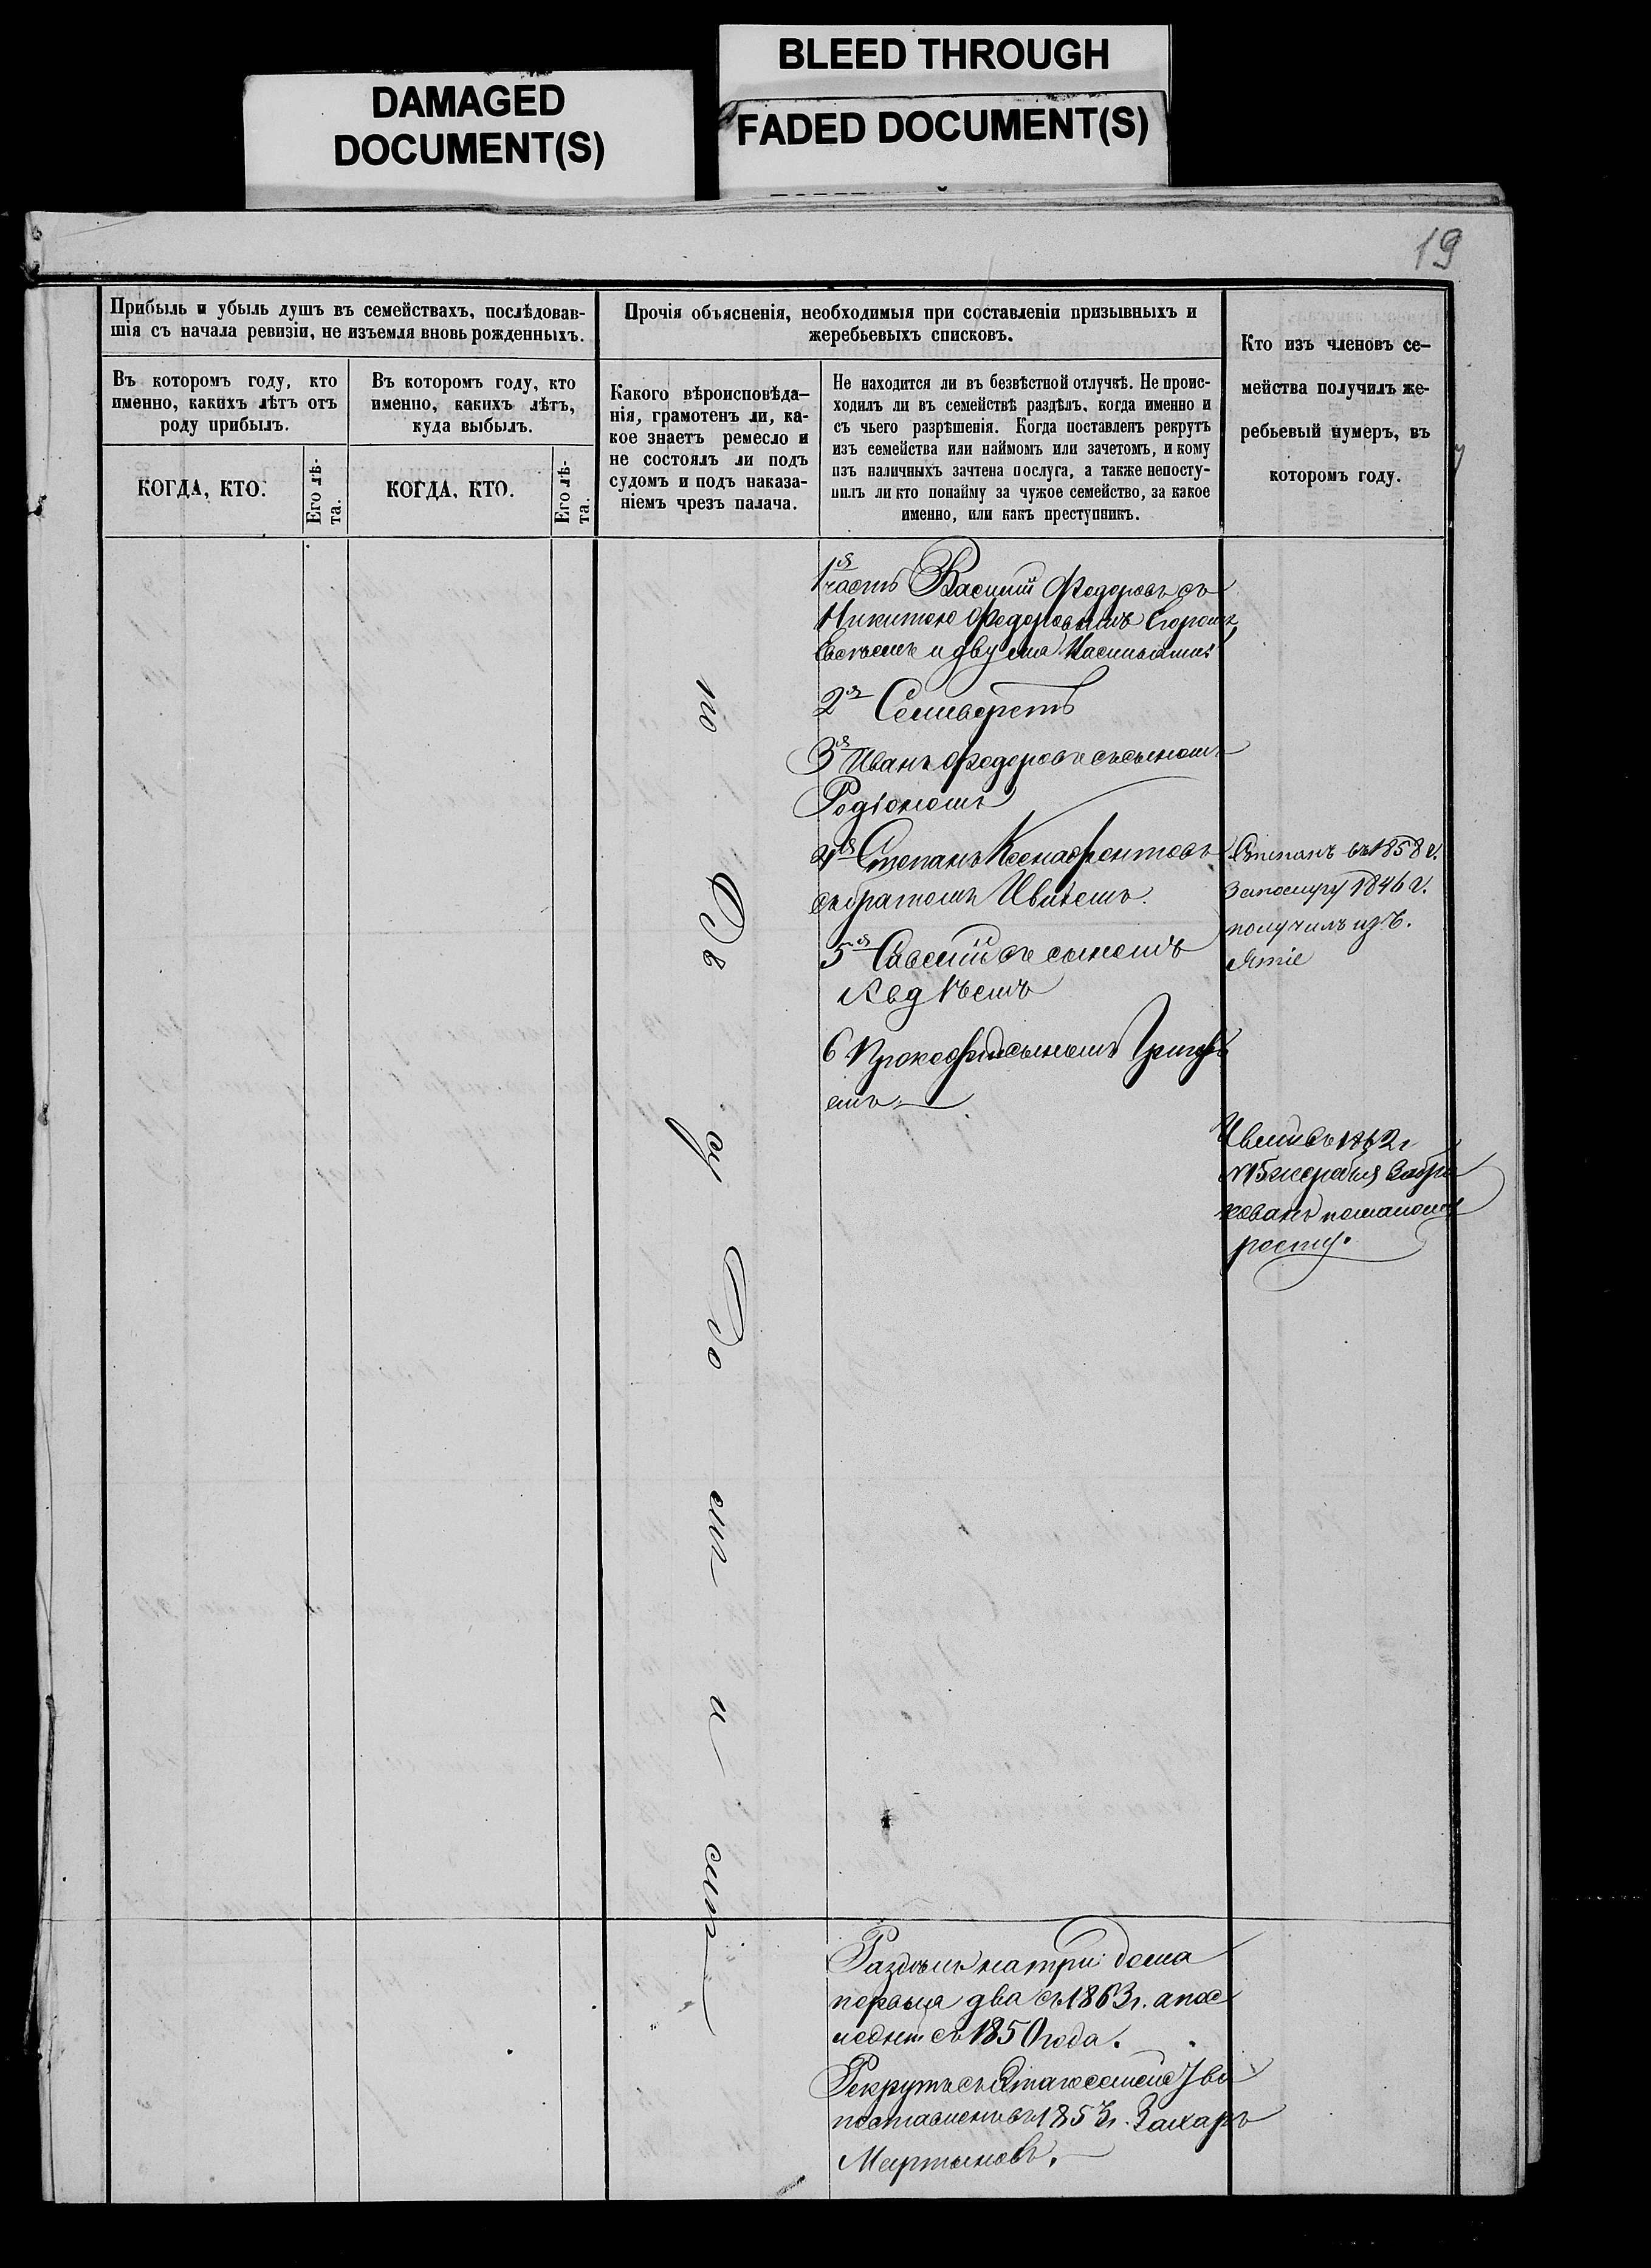 DAMAGED
DOCUMENT(S)
BLEED THROUGH
FADED DOCUMENT(S)
19
Прибыль и убыль душъ въ семействахъ, послѣдовав-
шія съ начала ревизіи, не изъемля вновь рожденныхъ.
Въ которомъ году, кто
именно, какихъ лѣтъ отъ
роду прибылъ.
Въ которомъ году, кто
именно, какихъ лѣтъ,
куда выбылъ.
КОГДА, КТО.
Его лѣ-
та.
КОГДА, КТО.
Его лѣ-
та.
Прочія объясненія, необходимыя при составленіи призывныхъ и
жеребьевыхъ списковъ.
Какого вѣроисповѣда-
нія, грамотенъ ли, ка-
кое знаетъ ремесло и
не состоялъ ли подъ
судомъ и подъ наказа-
ніемъ чрезъ палача.
Не находится ли въ безвѣстной отлучкѣ. Не проис-
ходилъ ли въ семействѣ раздѣлъ, когда именно и
съ чьего разрѣшенія. Когда поставленъ рекрутъ
изъ семейства или наймомъ или зачетомъ, и кому
изъ наличныхъ зачтена послуга, а также непосту-
пилъ ли кто понайму за чужое семейство, за какое
именно, или какъ преступникъ.
Кто изъ членовъ се-
мейства получилъ же-
ребьевый нумеръ, въ
которомъ году.
1я часть Василій Федоровъ съ
Никитою Федоровымъ Егоромъ,
Евсѣемъ и двумя
2я Селиверстъ
3я Иванъ Федоровъ съ сыномъ
Родіономъ
4я Степанъ Ксенофонтовъ
съ братомъ Ивліемъ.
5я Савелій съ сыномъ
Авдѣемъ
6 Прокофій сыномъ Григорь
емъ
Степанъ въ 1858 г.
За послугу 1846 г.
получилъ изъ.
ятіе
Ивлій въ 1862 г
№15 жеребья Забра
кованъ помалому
росту.
Раздѣлъ на три дома
первыя два съ 1863 г. а пос
ледній съ 1850 года.
Рекрутъ съ
поставленъ въ 1853 г. Захаръ
Мартыновъ.